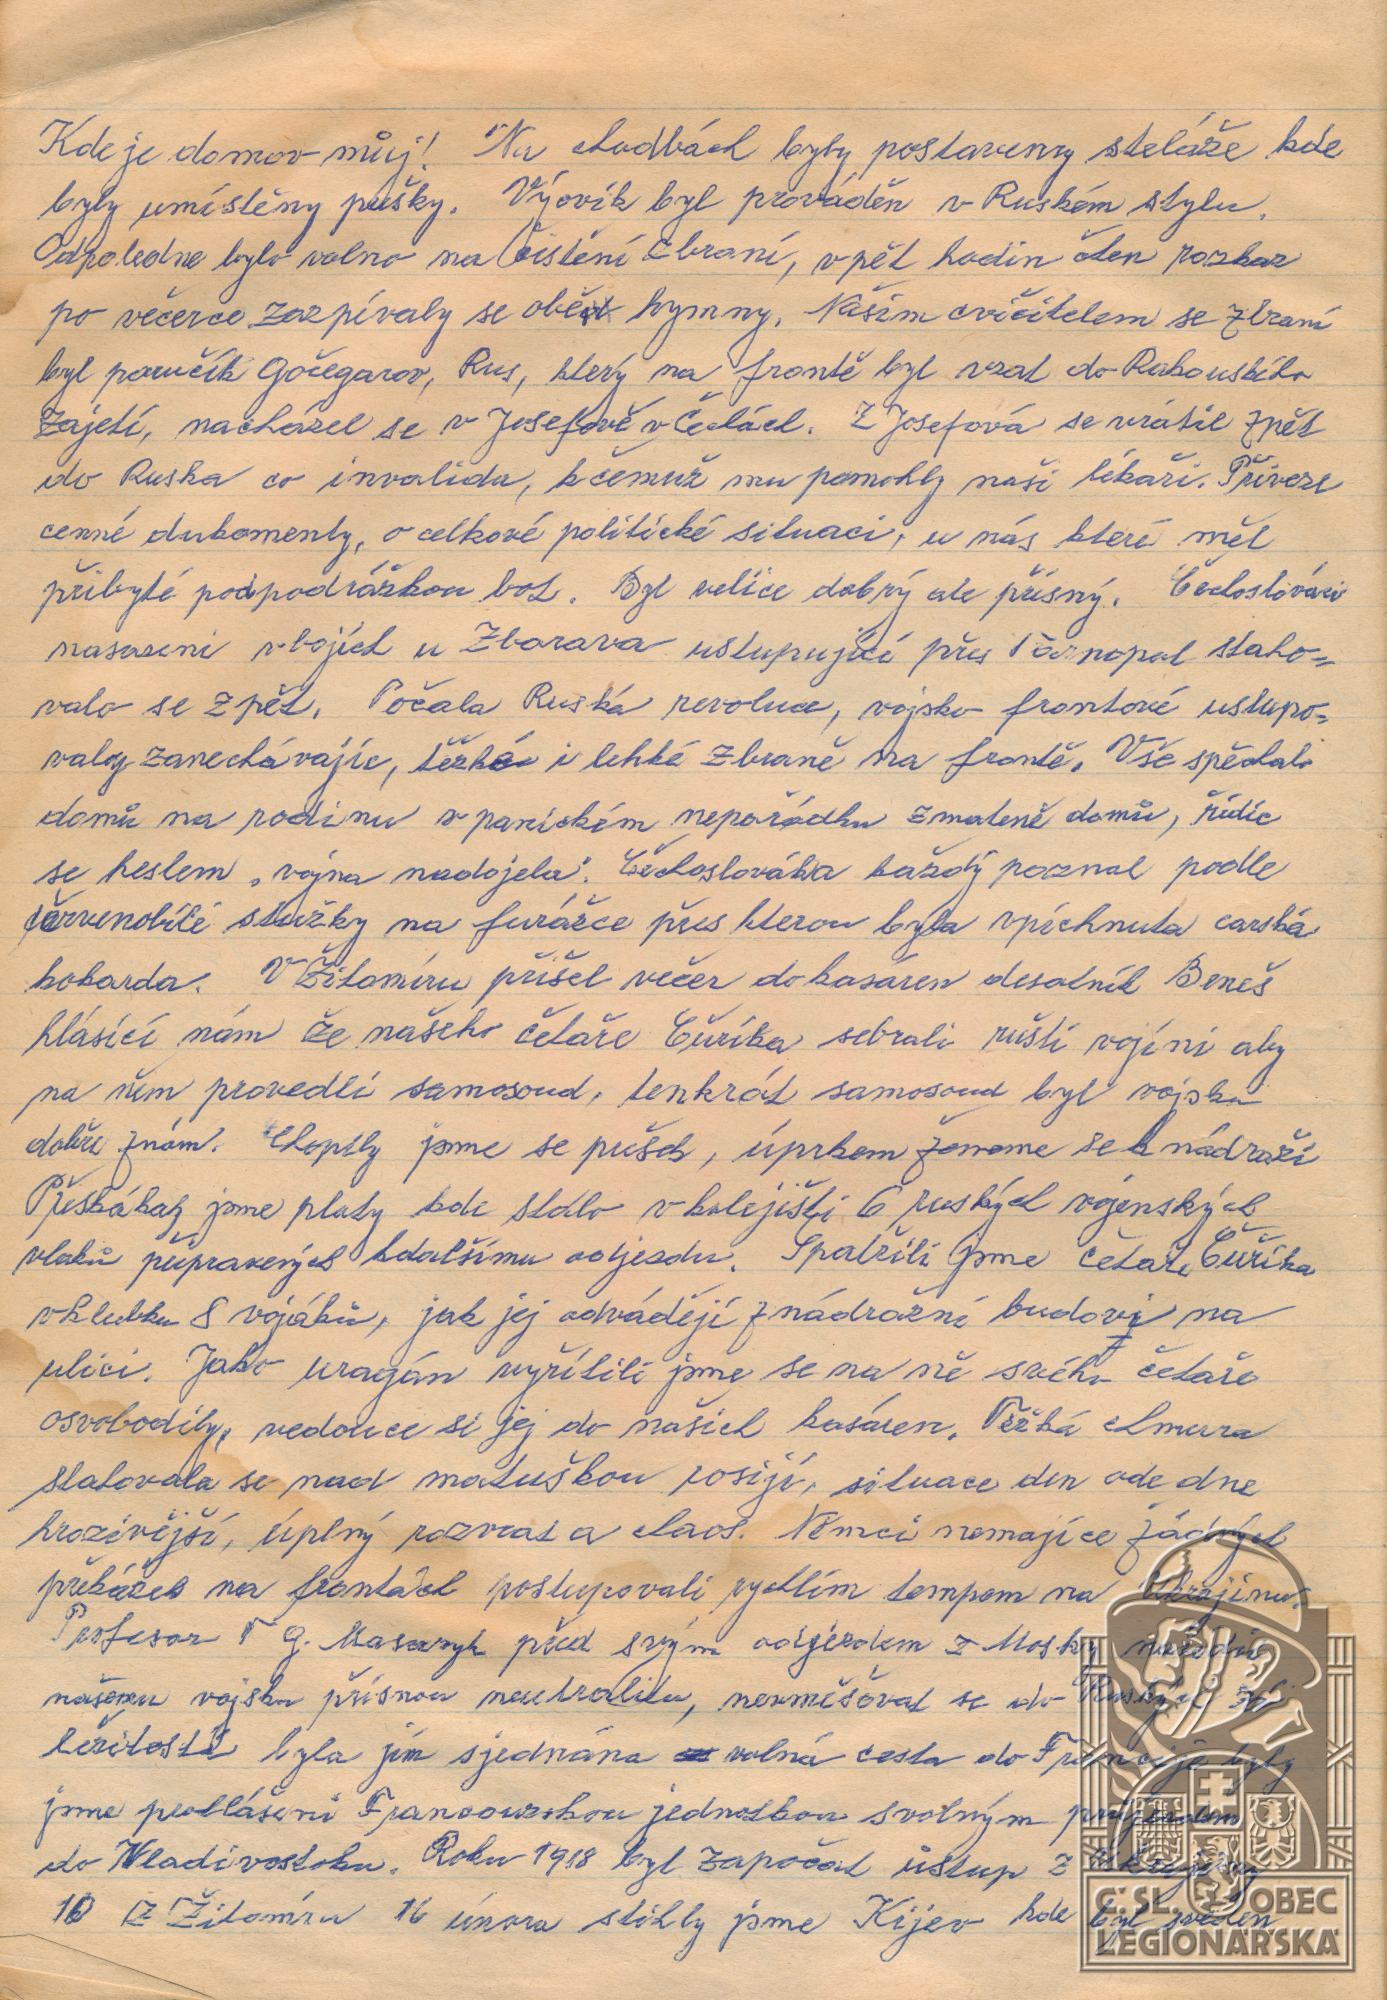 Kde je domov můj! "Na chodbách byly postaveny steláže kde
byly umístěny pušky. Výcvik byl prováděn v Ruském stylu.
Odpoledne bylo volno na čistění zbraní, v pět hodin čten rozkaz
po večerce zazpívaly se obě hymny. Naším cvičitelem se zbraní
byl poručík Gočegarov, Rus, který na frontě byl vzat do Rakouského
zajetí, nacházel se v Josefově v Čechách. Z Josefová se vrátil zpět
do Ruska co invalida, k čemuž mu pomohly naši lékaři. Přivezl
cenné dukomenty, o celkové politické situaci, u nás které měl
přibyté pod podrážkou bot. Byl velice dobrý ale přísný. Čechoslováci
nasazeni v bojích u Zborava ustupující přes Tarnopol staho-
valo se zpět. Počala Ruská revoluce, vojsko frontové ustupo-
valoy zanechávajíc, těžké i lehké zbraně na frontě. Vše spěchalo
domů na rodinu v panickém nepořádku zmateně domů, řídíc
se heslem „vojna nadojela". Čechoslováka každý poznal podle
červenobílé stužky na furážce přes kterou byla vpíchnuta carská
kokarda. V Žitomíru přišel večer do kasáren desátník Beneš
hlásící nám že našeho četaře Čuříka sebrali ruští vojíni aby
na něm provedli samosoud, tenkrát samosoud byl vojsku
dobře znám. Chopily jsme se pušek, úprkem ženeme se k nádraží
Přeskákaly jsme ploty kde stálo v kolejišti 6 ruských vojenských
vlaků připravených k dalšímu odjezdu. Spatřili jsme četaře Čuříka
v klubku 8 vojáků, jak jej odvádějí z nádražní budovy na
ulici. Jako uragán vyřítili jsme se na ně svého četaře
osvobodily, vedouce si jej do našich kasáren. Těžká chmura
stahovala se nad matuškou rosijí, situace den ode dne
hrozivější, úplný rozvrat a chaos. Němci nemajíce žádných
překážek na frontách postupovali rychlím tempem na Ukrajinu.
Profesor T G. Masaryk před svým odjezdem z Moskvy nařídil
našemu vojsku přísnou neutralitu, nevměšovat se do Ruských zá
ležitostí byla jím sjednána volná cesta do Francije byly
jsme prohlášeni Francouzskou jednotkou s volným průjezdem
do Wladivostoku. Roku 1918 byl započat ústup z Ukrajiny
10 Z Žitomíru 16 února stihly jsme Kijev kde byl sveden
Č. SL. OBEC
LEGIONÁŘSKÁ